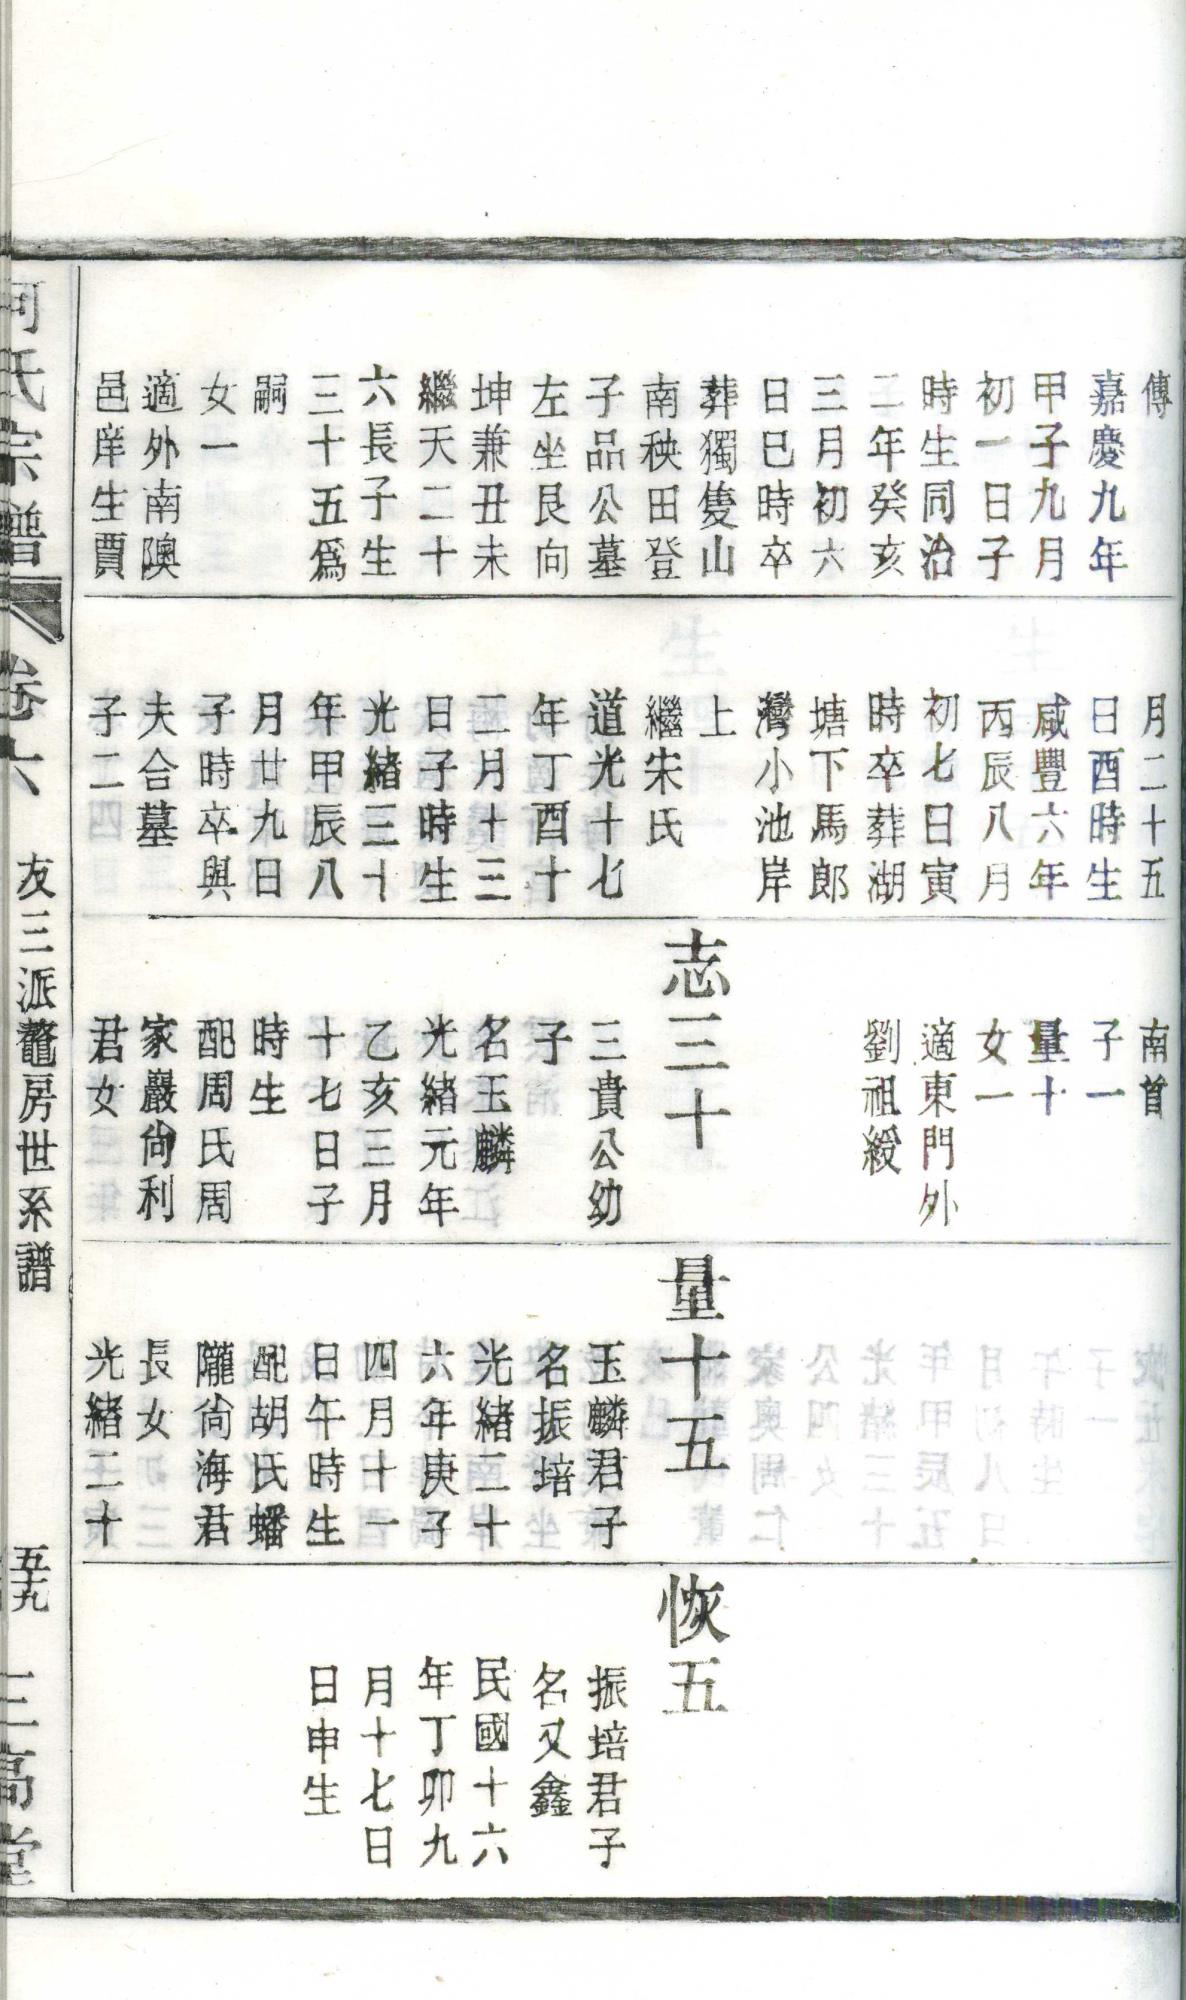 傳
嘉慶九年
甲子九月
初一日子
時生同治
二年癸亥
三月初六
日巳時卒
葬獨隻山
南秧田登
子品公墓
左坐艮向
坤兼丑未
繼天二十
六長子生
三十五爲
嗣
女一
適外南隩
邑庠生賈
月二十五
日酉時生
咸豐六年
丙辰八月
初七日寅
時卒葬湖
塘下馬郎
灣小池岸
上
繼宋氏
道光十七
年丁酉十
二月十三
日子時生
光緒三十
年甲辰八
月廿九日
子時卒與
夫合墓
子二
南首
子一
量十
女一
適東門外
劉祖緩
志三十
三貴公幼
子
名玉麟
光緒元年
乙亥三月
十七日子
時生
配周氏周
家巖尙利
君女
量十五
玉麟君子
名振培
光緒二十
六年庚子
四月十一
日午時生
配胡氏蟠
隴尙海君
長女
光緒二十
恢五
振培君子
名又鑫
民國十六
年丁卯九
月十七日
日申生
何氏宗譜
卷六
友三派鼇房世系譜
五十九
三高堂